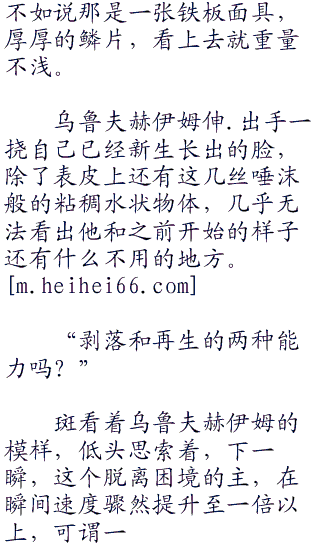 不如说那是一张铁板面具，
厚厚的鳞片，看上去就重量
不浅。
乌鲁夫赫伊姆伸.出手一
挠自己已经新生长出的脸，
除了表皮上还有这几丝唾沫
般的粘稠水状物体，几乎无
法看出他和之前开始的样子
还有什么不用的地方。
[m.heihei66.com]
“剥落和再生的两种能
力吗？”
斑看着乌鲁夫赫伊姆的
模样，低头思索着，下一
瞬，这个脱离困境的主，在
瞬间速度骤然提升至一倍以
上，可谓一